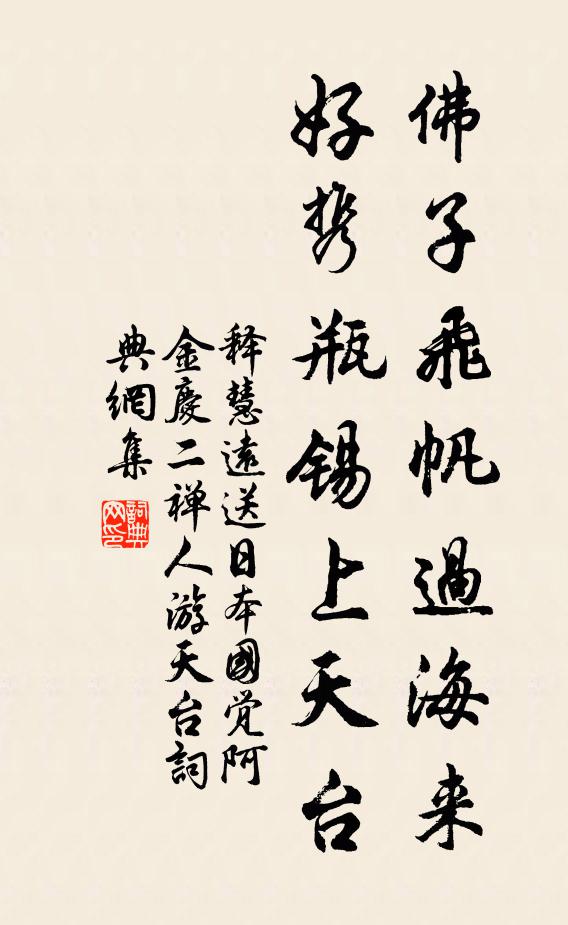 佛子飛帆過海来
好携瓶锡上天台
释慧遠送日本國覚阿
金慶二禅人游天台詞
典網集
詞典网印